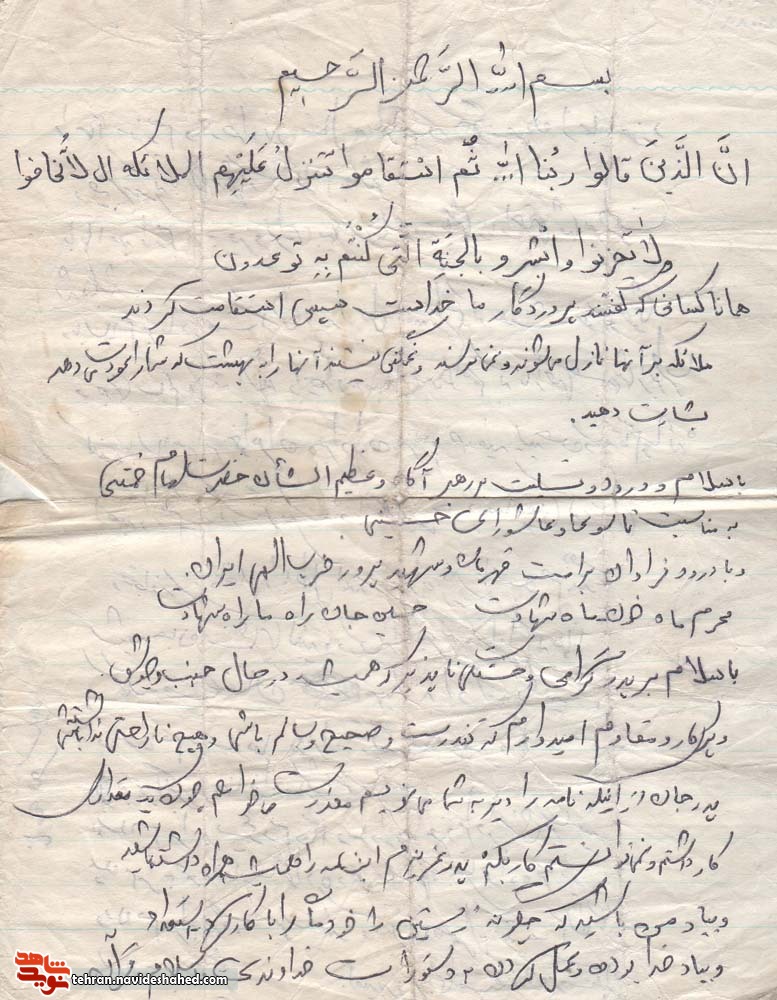 بسم الله الرَّحمن الرَّحیم
انَّ الَّذینَ قالوا ربُنا الله ثُم استقاموا تَتنزلُ عَلَیهِم الملائکه ال لاتُخافوا
ولا تَحزنوا وابشرو بالجنَةِ الَّتی کُنتُم بِهِ توعَدون
همانا کسانی که گفتند پروردگار ما خداست سپس استقامت کردند
ملائکه بر آنها نازل می‌شوند و نمی‌ترسند و غمگین نیستند آنها را به بهشت که شما را دهد
بشارت دهید.
با سلام و درود و تسلیت بر رهبر آگاه و عظیم الشأن حضرت امام خمینی
به مناسبت تاسوعا و عاشورای حسینی
و با درود فراوان بر امت قهرمان و شهید پرور حزب الهی ایران.
محرم ماه خون ماه شهادت حسین جان راه ما راه شهادت
با سلام بر پدر گرامی و خستگی ناپذیر که همیشه در حال جنب و جوش
و پرکار و مقاوم امیدوارم که تندرست و صحیح و سالم باشی و هیچ ناراحتی نداشته باشی
پدر جان از اینکه نامه را دیر به شما می‌نویسم معذرت می‌خواهم چون یک مقداری
کار داشتم و نمی‌توانستم کار بکنم پدر عزیزم این نامه را همیشه همراه داشته باشید
و بیاد من باشید که چگونه زیستن را خود ما را با کار
و بیاد خدا بوده و عمل کردن به دستورات خداوندی
نوید شاهد
tehran.navideshahed.com